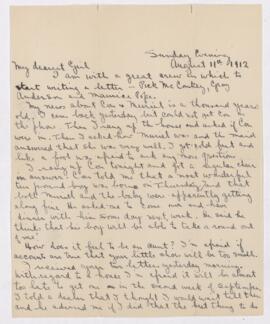 Sunday Evening
August 11th 1912
My dearest Girl
I am with a great crew in which to
start writing a letter - Dick McConkey, Gray
Anderson and Maurice Pope.
My news about Cos & Muriel is a thousand years
old. I came back yesterday but could not get Cos on
the phone. Then I rang up the house and asked if Cos
was in. Then I asked how Muriel was and the maid
answered that she was very well. I got cold feet and
like a fool was afraid to ask any more questions.
I rang up Cos tonight and got a regular cheer
in answer. Cos told me that a most wonderful
ten pound boy was born on Thursday and that
both Muriel and the baby were apparently getting
along fine. He asked me to come over and have
dinner with him some day next week. He said he
thinks that his boy will be able to take a round out
of me.
How does it feel to be an aunt? I'm afraid if
accounts are true that your little shoes will be too small.
I received your two letters yesterday morning.
With regard to a house I'm afraid it will be almost
too late to get one in the second week of September.
I told a dealer that I thought I would wait till then
and he advised me if I did that the best thing to do